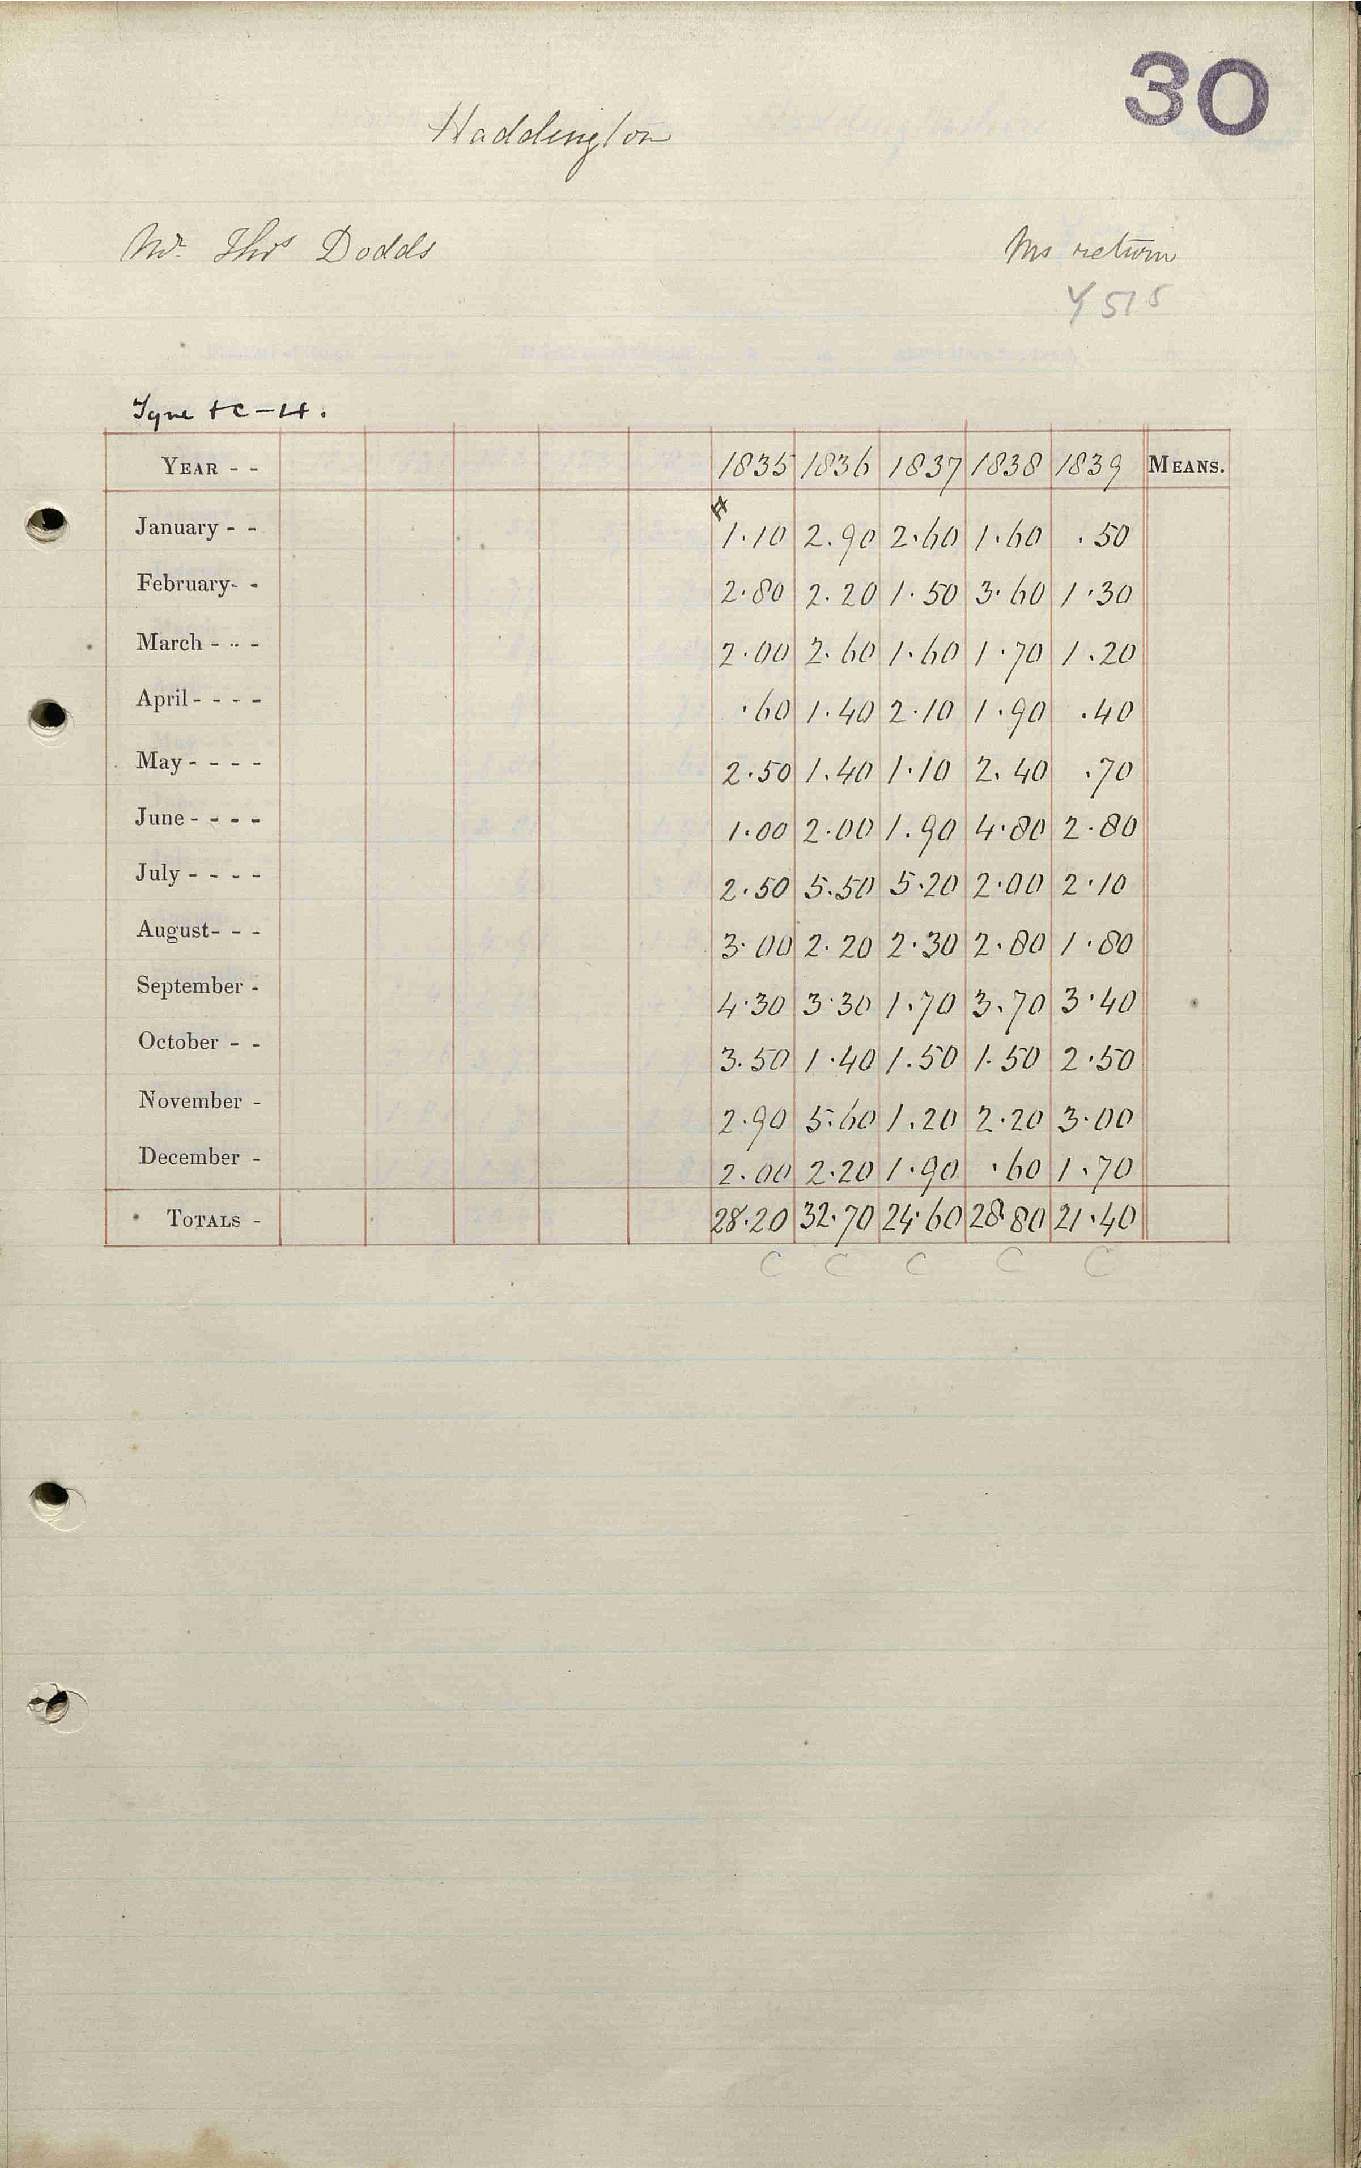 30
Haddington
Mr. Thos Dodds Ms return
Y 515
Tyne + C-H.
YEAR - - 1835 1836 1837 1838 1839 MEANS.
January - - 1.10 2.90 2.60 1.60 .50
February- - 2.80 2.20 1.50 3.60 1.30
March - - - 2.00 2.60 1.60 1.70 1.20
April - - - - .60 1.40 2.10 1.90 .40
May - - - - 2.50 1.40 1.10 2.40 .70
June - - - - 1.00 2.00 1.90 4.80 2.80
July - - - - 2.50 5.50 5.20 2.00 2.10
August- - - 3.00 2.20 2.30 2.80 1.80
September - 4.30 3.30 1.70 3.70 3.40
October - - 3.50 1.40 1.50 1.50 2.50
November - 2.90 5.60 1.20 2.20 3.00
December - 2.00 2.20 1.90 .60 1.70
TOTALS - 28.20 32.70 24.60 28.80 21.40
C C C C C